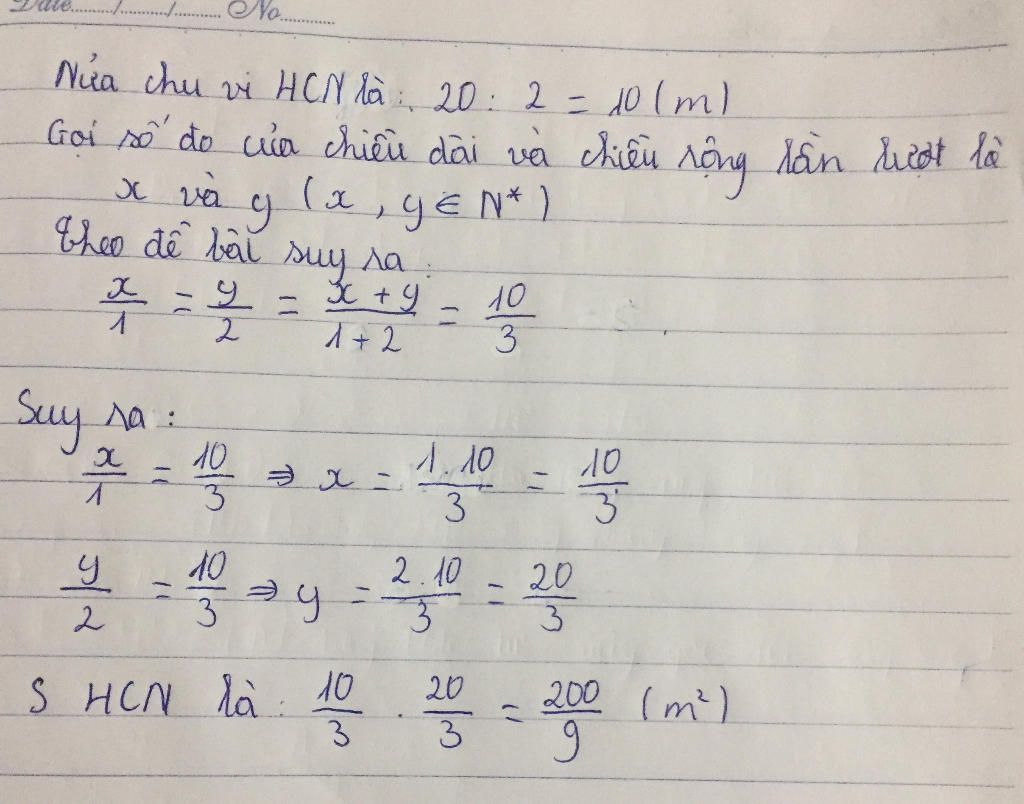 Date...../...../........ No............
Nửa chu vi HCN là: 20 : 2 = 10 (m)
Gọi số đo của chiều dài và chiều rộng lần lượt là
x và y (x, y ∈ N*)
Theo đề bài suy ra:
x/1 = y/2 = (x + y)/(1 + 2) = 10/3
Suy ra:
x/1 = 10/3 ⇒ x = (1.10)/3 = 10/3
y/2 = 10/3 ⇒ y = (2.10)/3 = 20/3
S HCN là: 10/3 . 20/3 = 200/9 (m²)